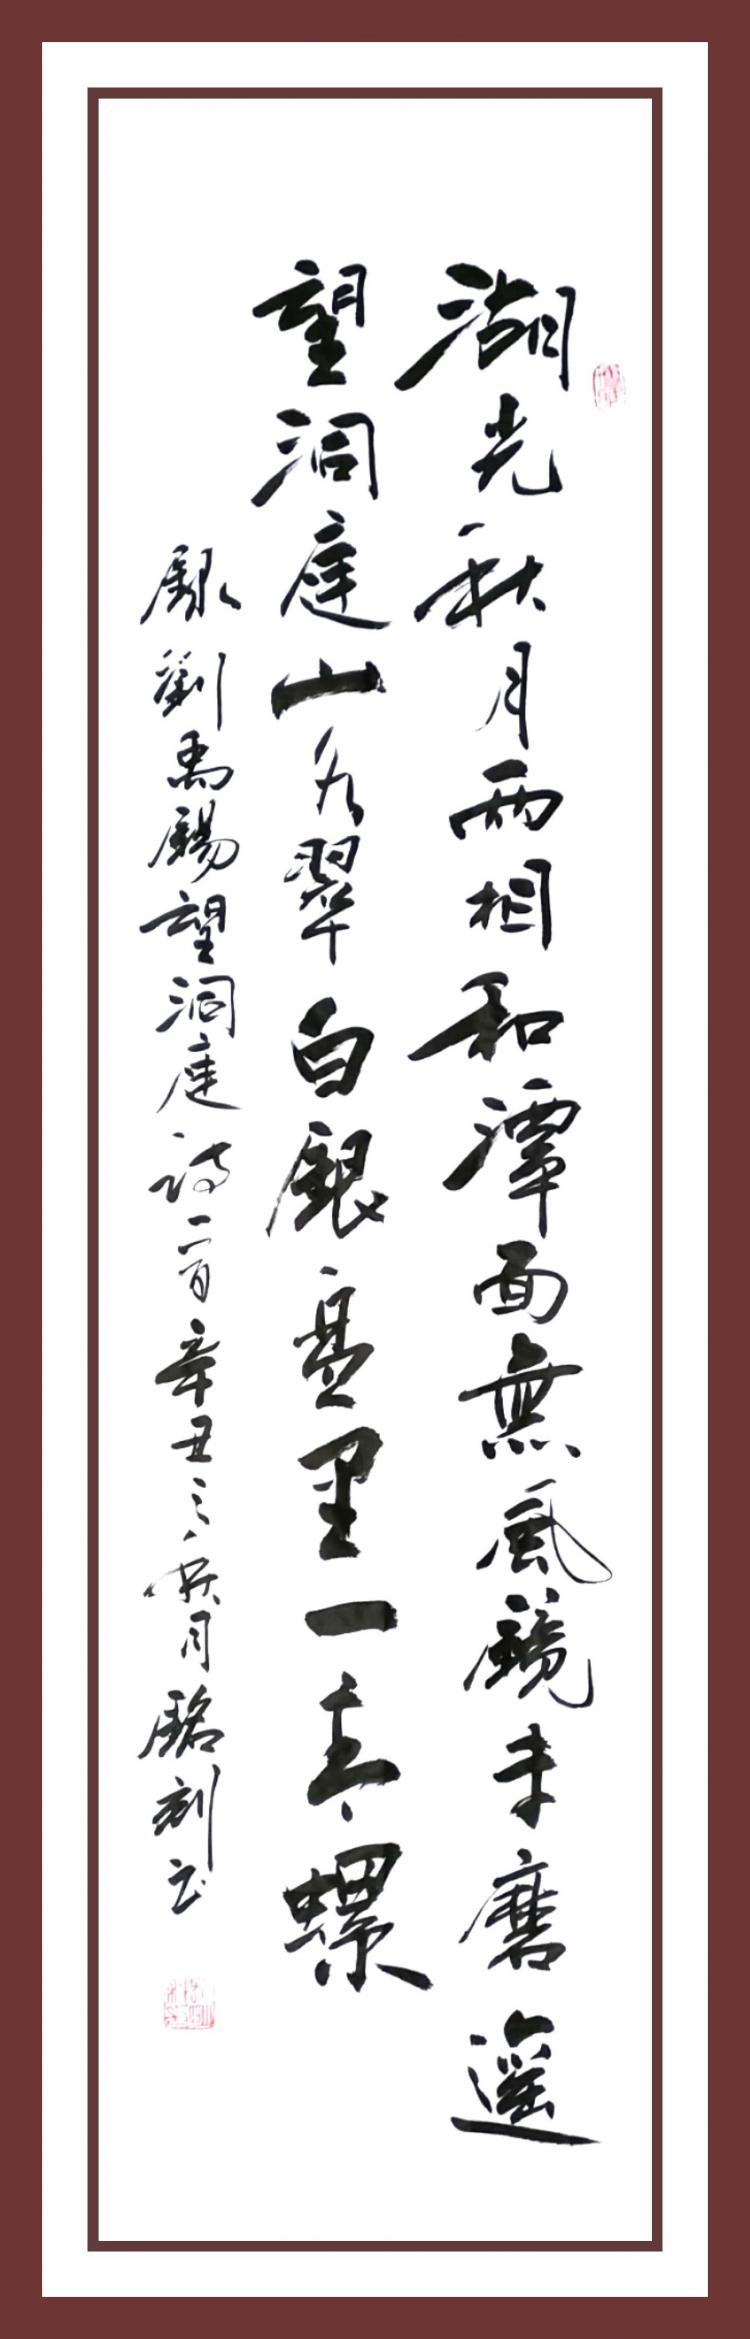 湖光秋月兩相和潭面無風鏡未磨遙
望洞庭山水翠白銀盘里一青螺
録劉禹錫望洞庭詩一首辛丑之秋月銘书